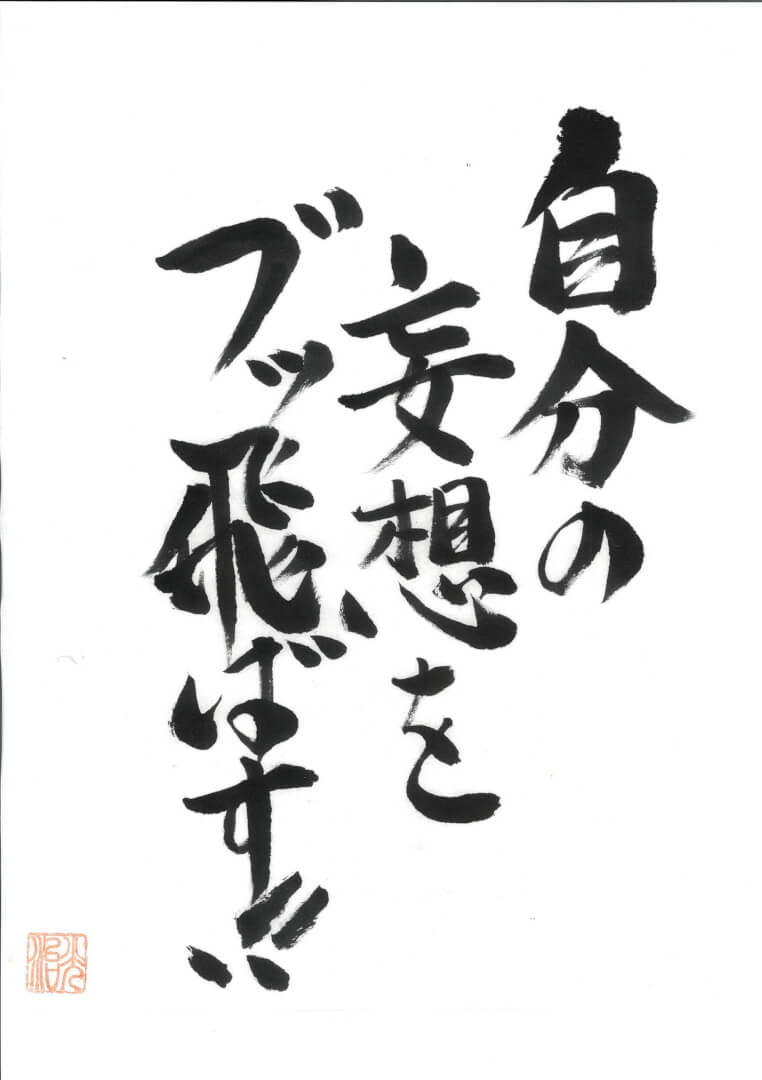 自分の
妄想を
ブッ飛ばす!!